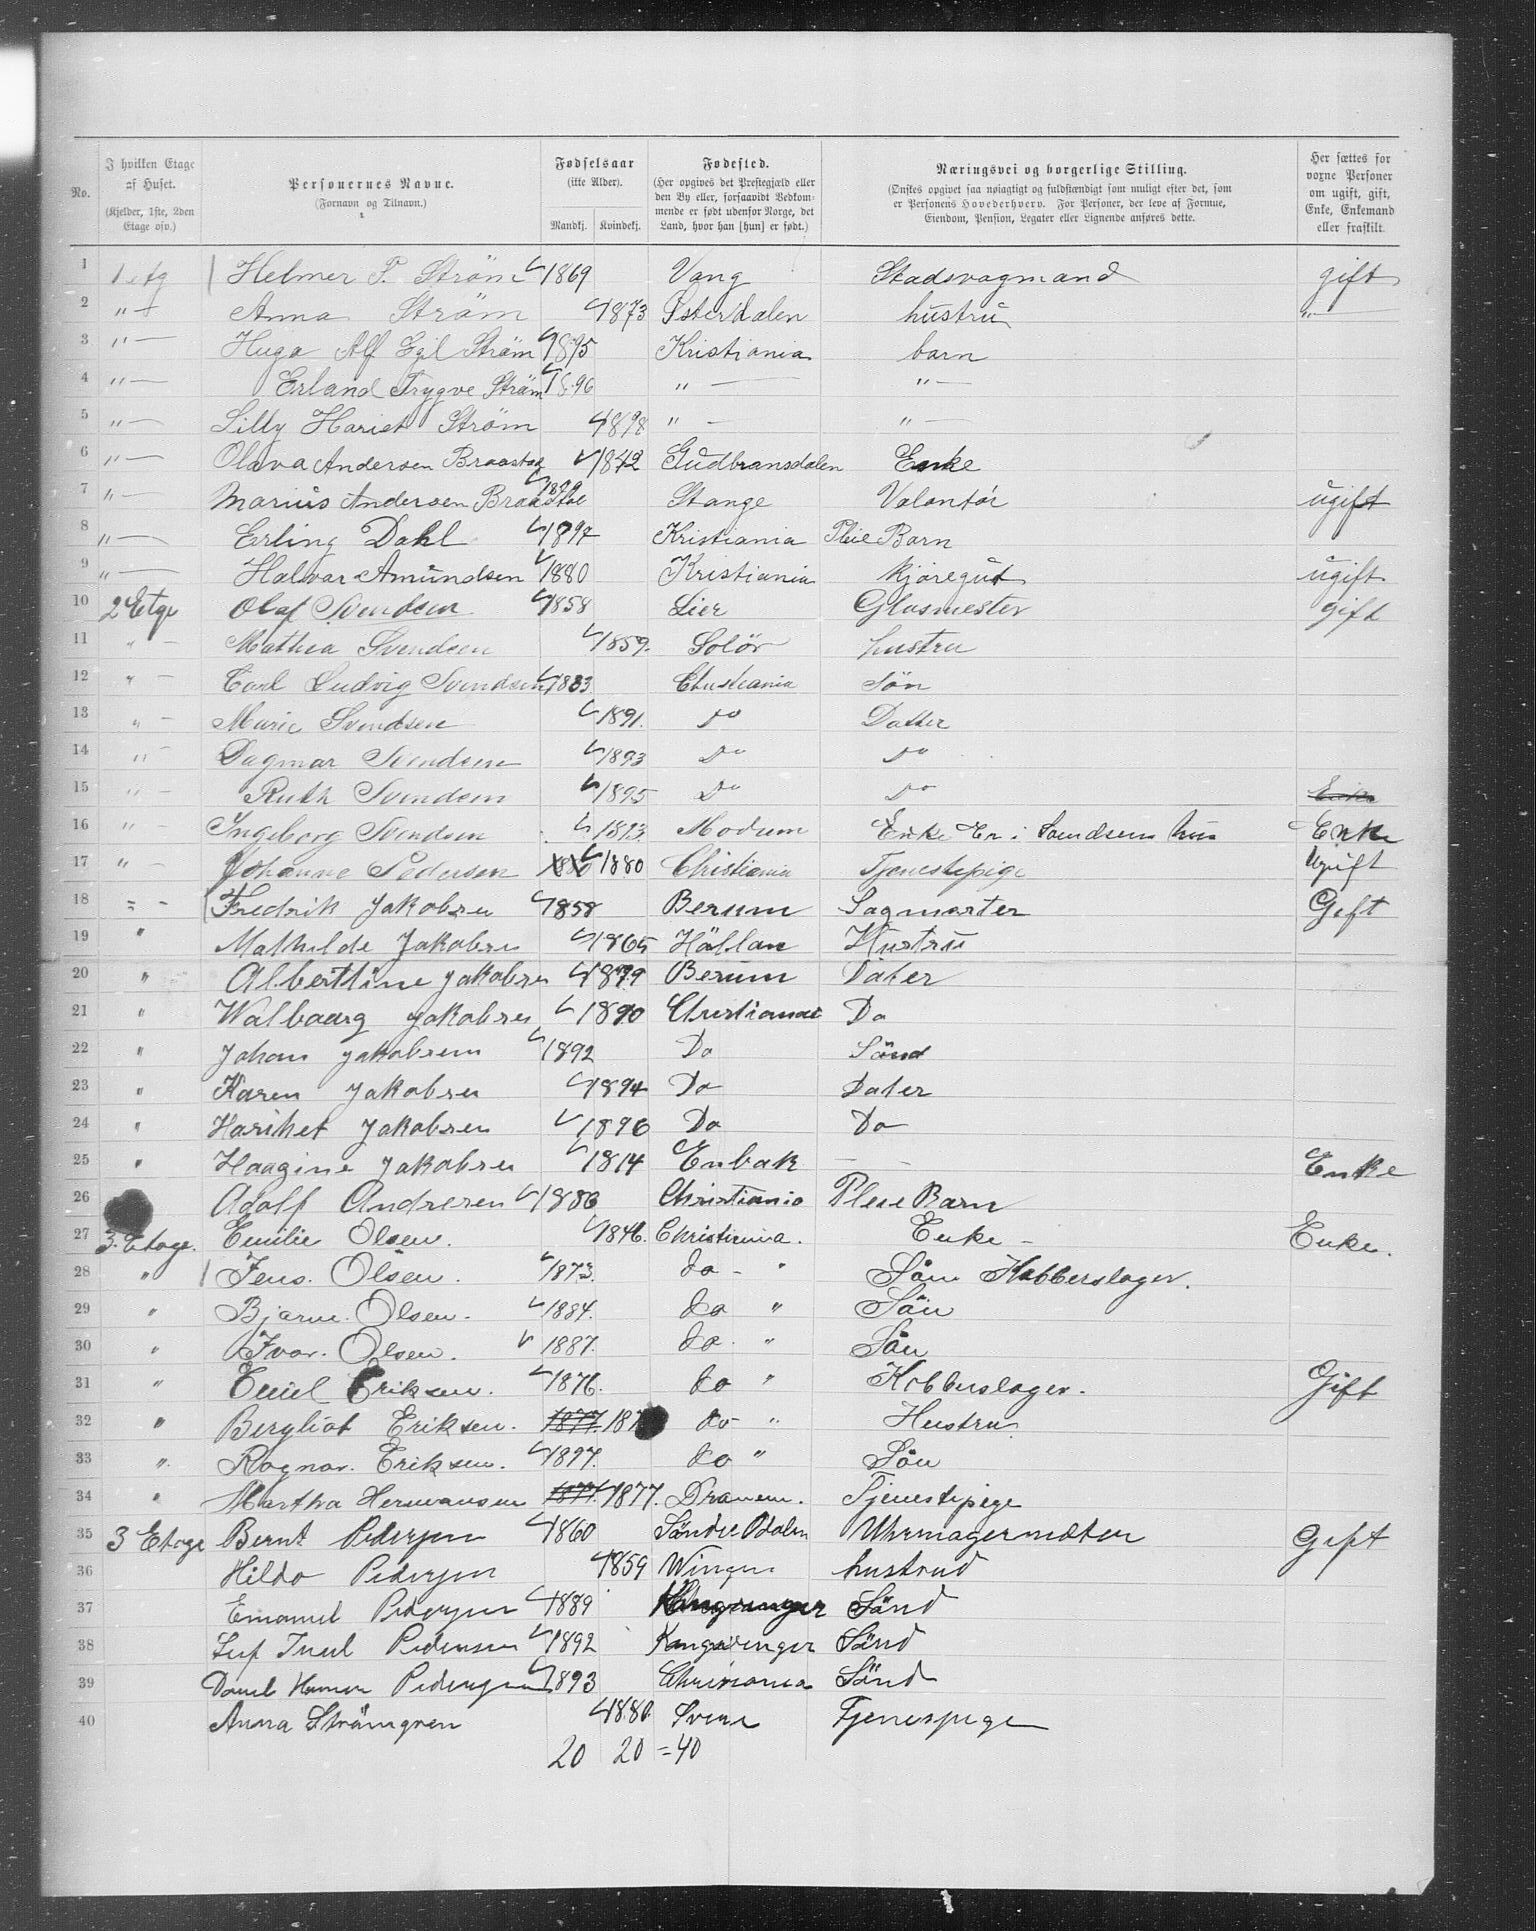 No.
I hvilken Etage af Huset. (Kjelder, 1ste, 2den Etage osv.)
Personernes Navne. (Fornavn og Tilnavn.)
Fødselsaar (ikke Alder). Mandkj. Kvindekj.
Fødested. (Her opgives det Prestegjæld eller den By eller, forsaavidt Vedkommende er født udenfor Norge, det Land, hvor han [hun] er født.)
Næringsvei og borgerlige Stilling. (Ønskes opgivet saa nøiagtigt og fuldstændigt som muligt efter det, som er Personens Hovederhverv. For Personer, der leve af Formue, Eiendom, Pension, Legater eller Lignende anføres dette.
Her sættes for voxne Personer om ugift, gift, Enke, Enkemand eller fraskilt.
1 1 etg Helmer P. Ström 1869 Vang Stadsvogmand gift
2 " Anna Ström 1873 Østerdalen hustru "
3 " Hugo Alf Egil Ström 1895 Kristiania barn
4 " Erland Trygve Ström 1896 " "
5 " Silly Hariet Ström 1898 " "
6 " Olava Andersen Braastad 1842 Gudbransdalen Enke
7 " Marius Andersen Braastad 1879 Stange Volontör ugift
8 " Erling Dahl 1897 Kristiania Pleie Barn
9 " Halvar Amundsen 1880 Kristiania kjøregut ugift
10 2 Etge Olaf Svendsen 1858 Lier Glasmester gift
11 " Mathea Svendsen 1859. Solör hustru
12 " Carl Ludvig Svendsen 1883 Christiania Sön
13 " Marie Svendsen 1891. Do Datter
14 " Dagmar Svendsen 1893 Do Do
15 " Ruth Svendsen 1895 Do Do Enke
16 " Ingeborg Svendsen 1823 Modum Enke Er i Svendsens hus Enke
17 " Johanne Pedersen 1880 1880 Christiania Tjenestepige Ugift
18 " Fredrik Jakobsen 1858 Berum Sagmester Gift
19 " Mathilde Jakobsen 1865 Hållan Hustru
20 " Alberttine Jakobsen 1879 Berum Dater
21 " Walbaarg Jakobsen 1890 Christiania Do
22 " Johan Jakobsen 1892 Do Sönd
23 " Karen Jakobsen 1894 Do Dater
24 " Harihet Jakobsen 1896 Do Do
25 " Haagine Jakobsen 1814 Enbak — Enke
26 Adolf Andresen 1886 Christiania Pleie Barn
27 3. Etage. Emilie Olsen. 1846. Christiania. Enke - Enke.
28 " Jens. Olsen. 1873. do - " Sön Kobberslager.
29 " Bjarne. Olsen. 1884. do " Sön
30 " Ivar. Olsen. 1887. do. " Sön
31 " Emil Eriksen. 1876. do " Kobberslager. Gift
32 " Bergliot Eriksen. 1877. 187 do " Hustru
33 " Ragnar. Eriksen. 1897. do " Sön
34 " Martha Hermansen 1877. 1877. Dramen. Tjenestepige
35 3 Etage Bernt Pedersen 1860 Söndre Odalen Uhrmagermester Gift
36 Hilda Pedersen 1859 Winger hustrud
37 Emanuel Pedersen 1889 Kongsvinger Sönd
38 Leif Juel Pedersen 1892 Kongsvinger Sönd
39 Daniel Pedersen 1893 Christiania Sönd
40 Anna Strömgren 1880 Sverie Tjenespige
20 20 = 40